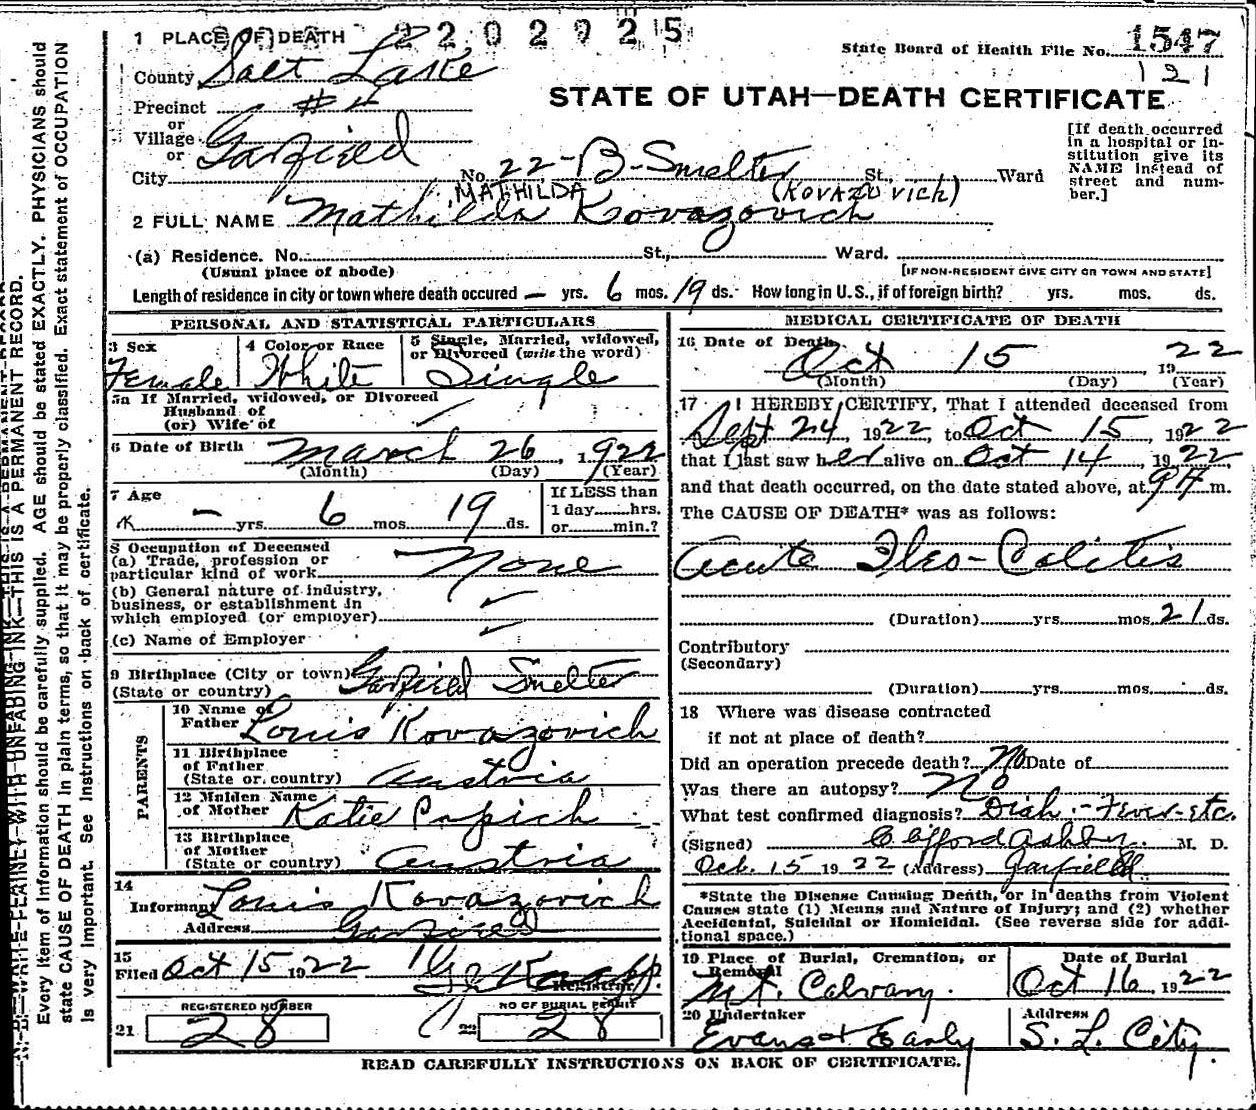 1 PLACE OF DEATH 2202925
State Board of Health File No. 1547
121
County Salt Lake
STATE OF UTAH—DEATH CERTIFICATE
Precinct #4
or
Village Garfield
or
City No. 22-B-Smelter St., Ward
[If death occurred in a hospital or institution give its NAME instead of street and number.]
MATHILDA (KOVAZOVICH)
2 FULL NAME Mathilda Kovazovich
(a) Residence. No. St., Ward.
(Usual place of abode) [IF NON-RESIDENT GIVE CITY OR TOWN AND STATE]
Length of residence in city or town where death occured — yrs. 6 mos. 19 ds. How long in U.S., if of foreign birth? yrs. mos. ds.
PERSONAL AND STATISTICAL PARTICULARS
3 Sex Female
4 Color or Race White
5 Single, Married, widowed, or Divorced (write the word) Single
5a If Married, widowed, or Divorced
Husband of
(or) Wife of
6 Date of Birth March 26, 1922
(Month) (Day) (Year)
7 Age
— yrs. 6 mos. 19 ds.
If LESS than
1 day......hrs.
or......min.?
8 Occupation of Deceased
(a) Trade, profession or
particular kind of work None
(b) General nature of industry,
business, or establishment in
which employed (or employer)
(c) Name of Employer
9 Birthplace (City or town) Garfield Smelter
(State or country)
PARENTS
10 Name of
Father Louis Kovazovich
11 Birthplace
of Father
(State or country) Austria
12 Maiden Name
of Mother Katie Papich
13 Birthplace
of Mother
(State or country) Austria
14
Informant Louis Kovazovich
Address Garfield
15
Filed Oct 15 1922 Knapp
Registrar
REGISTERED NUMBER
21 28
NO OF BURIAL PERMIT
22 28
MEDICAL CERTIFICATE OF DEATH
16 Date of Death
Oct 15, 1922
(Month) (Day) (Year)
17 I HEREBY CERTIFY, That I attended deceased from
Sept 24, 1922, to Oct 15, 1922
that I last saw her alive on Oct 14, 1922,
and that death occurred, on the date stated above, at 9 A m.
The CAUSE OF DEATH* was as follows:
Acute Ileo-Colitis
(Duration) yrs. mos. 21 ds.
Contributory
(Secondary)
(Duration) yrs. mos. ds.
18 Where was disease contracted
if not at place of death?
Did an operation precede death? No Date of
Was there an autopsy? No
What test confirmed diagnosis? Diah.-Fever-etc.
(Signed) Clifford Ashby. M. D.
Oct. 15 1922 (Address) Garfield
*State the Disease Causing Death, or in deaths from Violent
Causes state (1) Means and Nature of Injury; and (2) whether
Accidental, Suicidal or Homicidal. (See reverse side for addi-
tional space.)
19 Place of Burial, Cremation, or
Removal
Mt. Calvary.
Date of Burial
Oct 16, 1922
20 Undertaker
Evans & Early
Address
S. L. City.
READ CAREFULLY INSTRUCTIONS ON BACK OF CERTIFICATE.
N. B.—WRITE PLAINLY WITH UNFADING INK—THIS IS A PERMANENT RECORD.
Every item of information should be carefully supplied. AGE should be stated EXACTLY. PHYSICIANS should
state CAUSE OF DEATH in plain terms, so that it may be properly classified. Exact statement of OCCUPATION
is very important. See instructions on back of certificate.